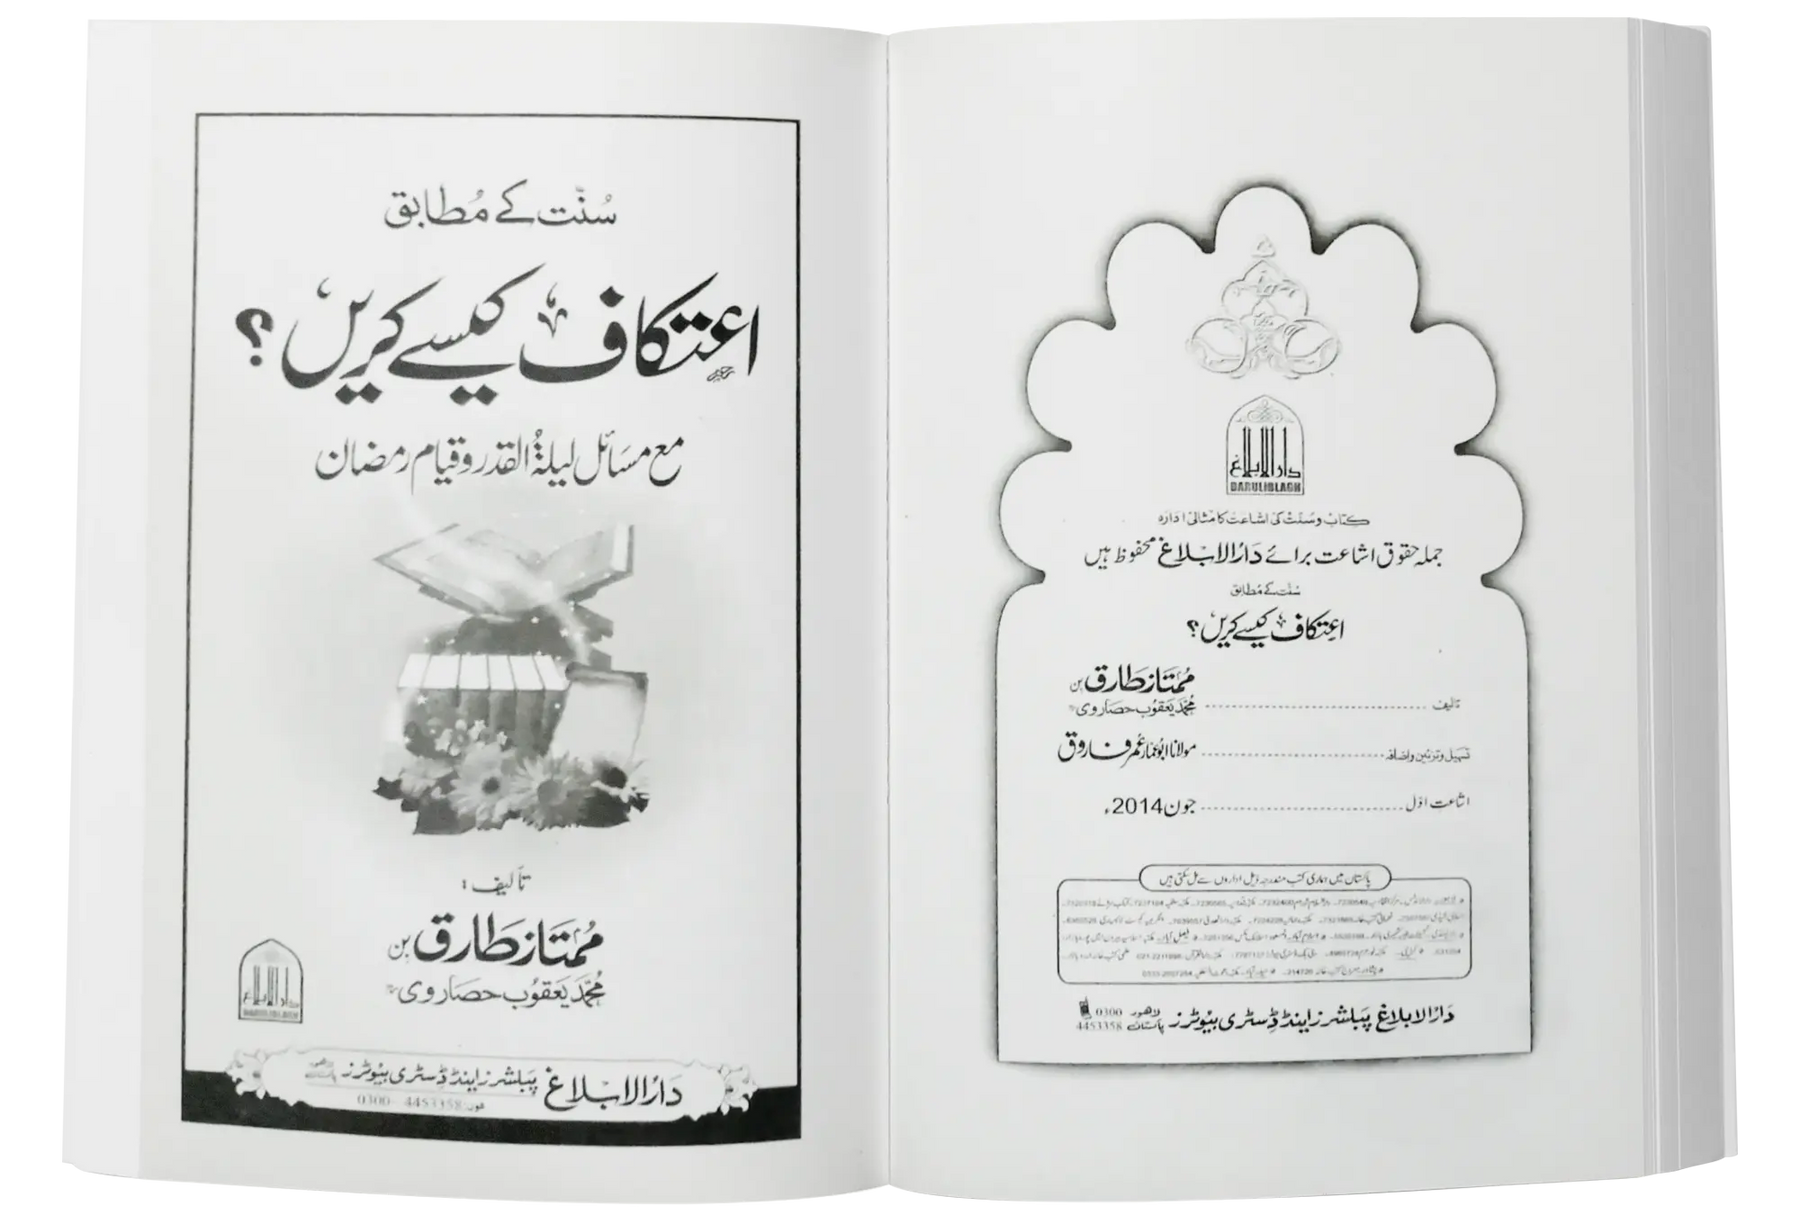 سُنّت کے مُطابق
اعتکاف کیسے کریں؟
مع مسائل لیلۃُ القدر و قیام رمضان
تالیف:
مُمتاز طارق بن
مُحمّد یعقوب حصاروی
دارالابلاغ
DARULIBLAGH
دَارُالابْلاغ پبلشرز اینڈ ڈسٹری بیوٹرز
فون: 0300 4453358
دارالابلاغ
DARULIBLAGH
کتاب و سُنّت کی اشاعت کا مثالی ادارہ
جملہ حقوق اشاعت برائے دَارُالابْلاغ محفوظ ہیں
سُنّت کے مُطابق
اعتکاف کیسے کریں؟
تالیف ............ مُمتاز طارق بن
مُحمّد یعقوب حصاروی
تسہیل و تزئین و اضافہ ............ مولانا ابو عمّار عُمر فاروق
اشاعت اوّل ............ جون 2014ء
پاکستان میں ہماری کتب مندرجہ ذیل اداروں سے مل سکتی ہیں
دَارُالابلاغ پبلشرز اینڈ ڈسٹری بیوٹرز لاہور پاکستان 0300 4453358